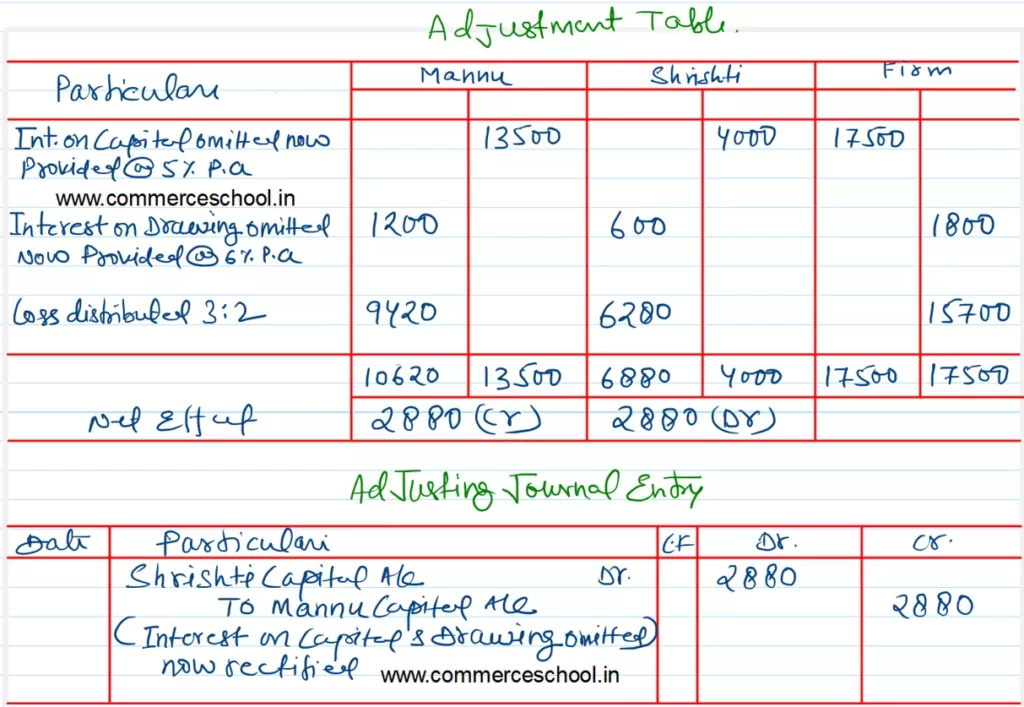 Adjustment Table.
Particulars Mannu Shrishti Firm
Int. on Capital omitted now 13500 4000 17500
Provided @ 5% P.a
www.commerceschool.in
Interest on Drawing omitted 1200 600 1800
Now Provided @ 6% P.a
Loss distributed 3:2 9420 6280 15700
10620 13500 6880 4000 17500 17500
Net Effect 2880 (Cr) 2880 (Dr)
Adjusting Journal Entry
Date Particulars LF Dr. Cr.
Shrishti Capital A/c Dr. 2880
To Mannu Capital A/c 2880
(Interest on Capital & Drawing omitted)
now rectified www.commerceschool.in